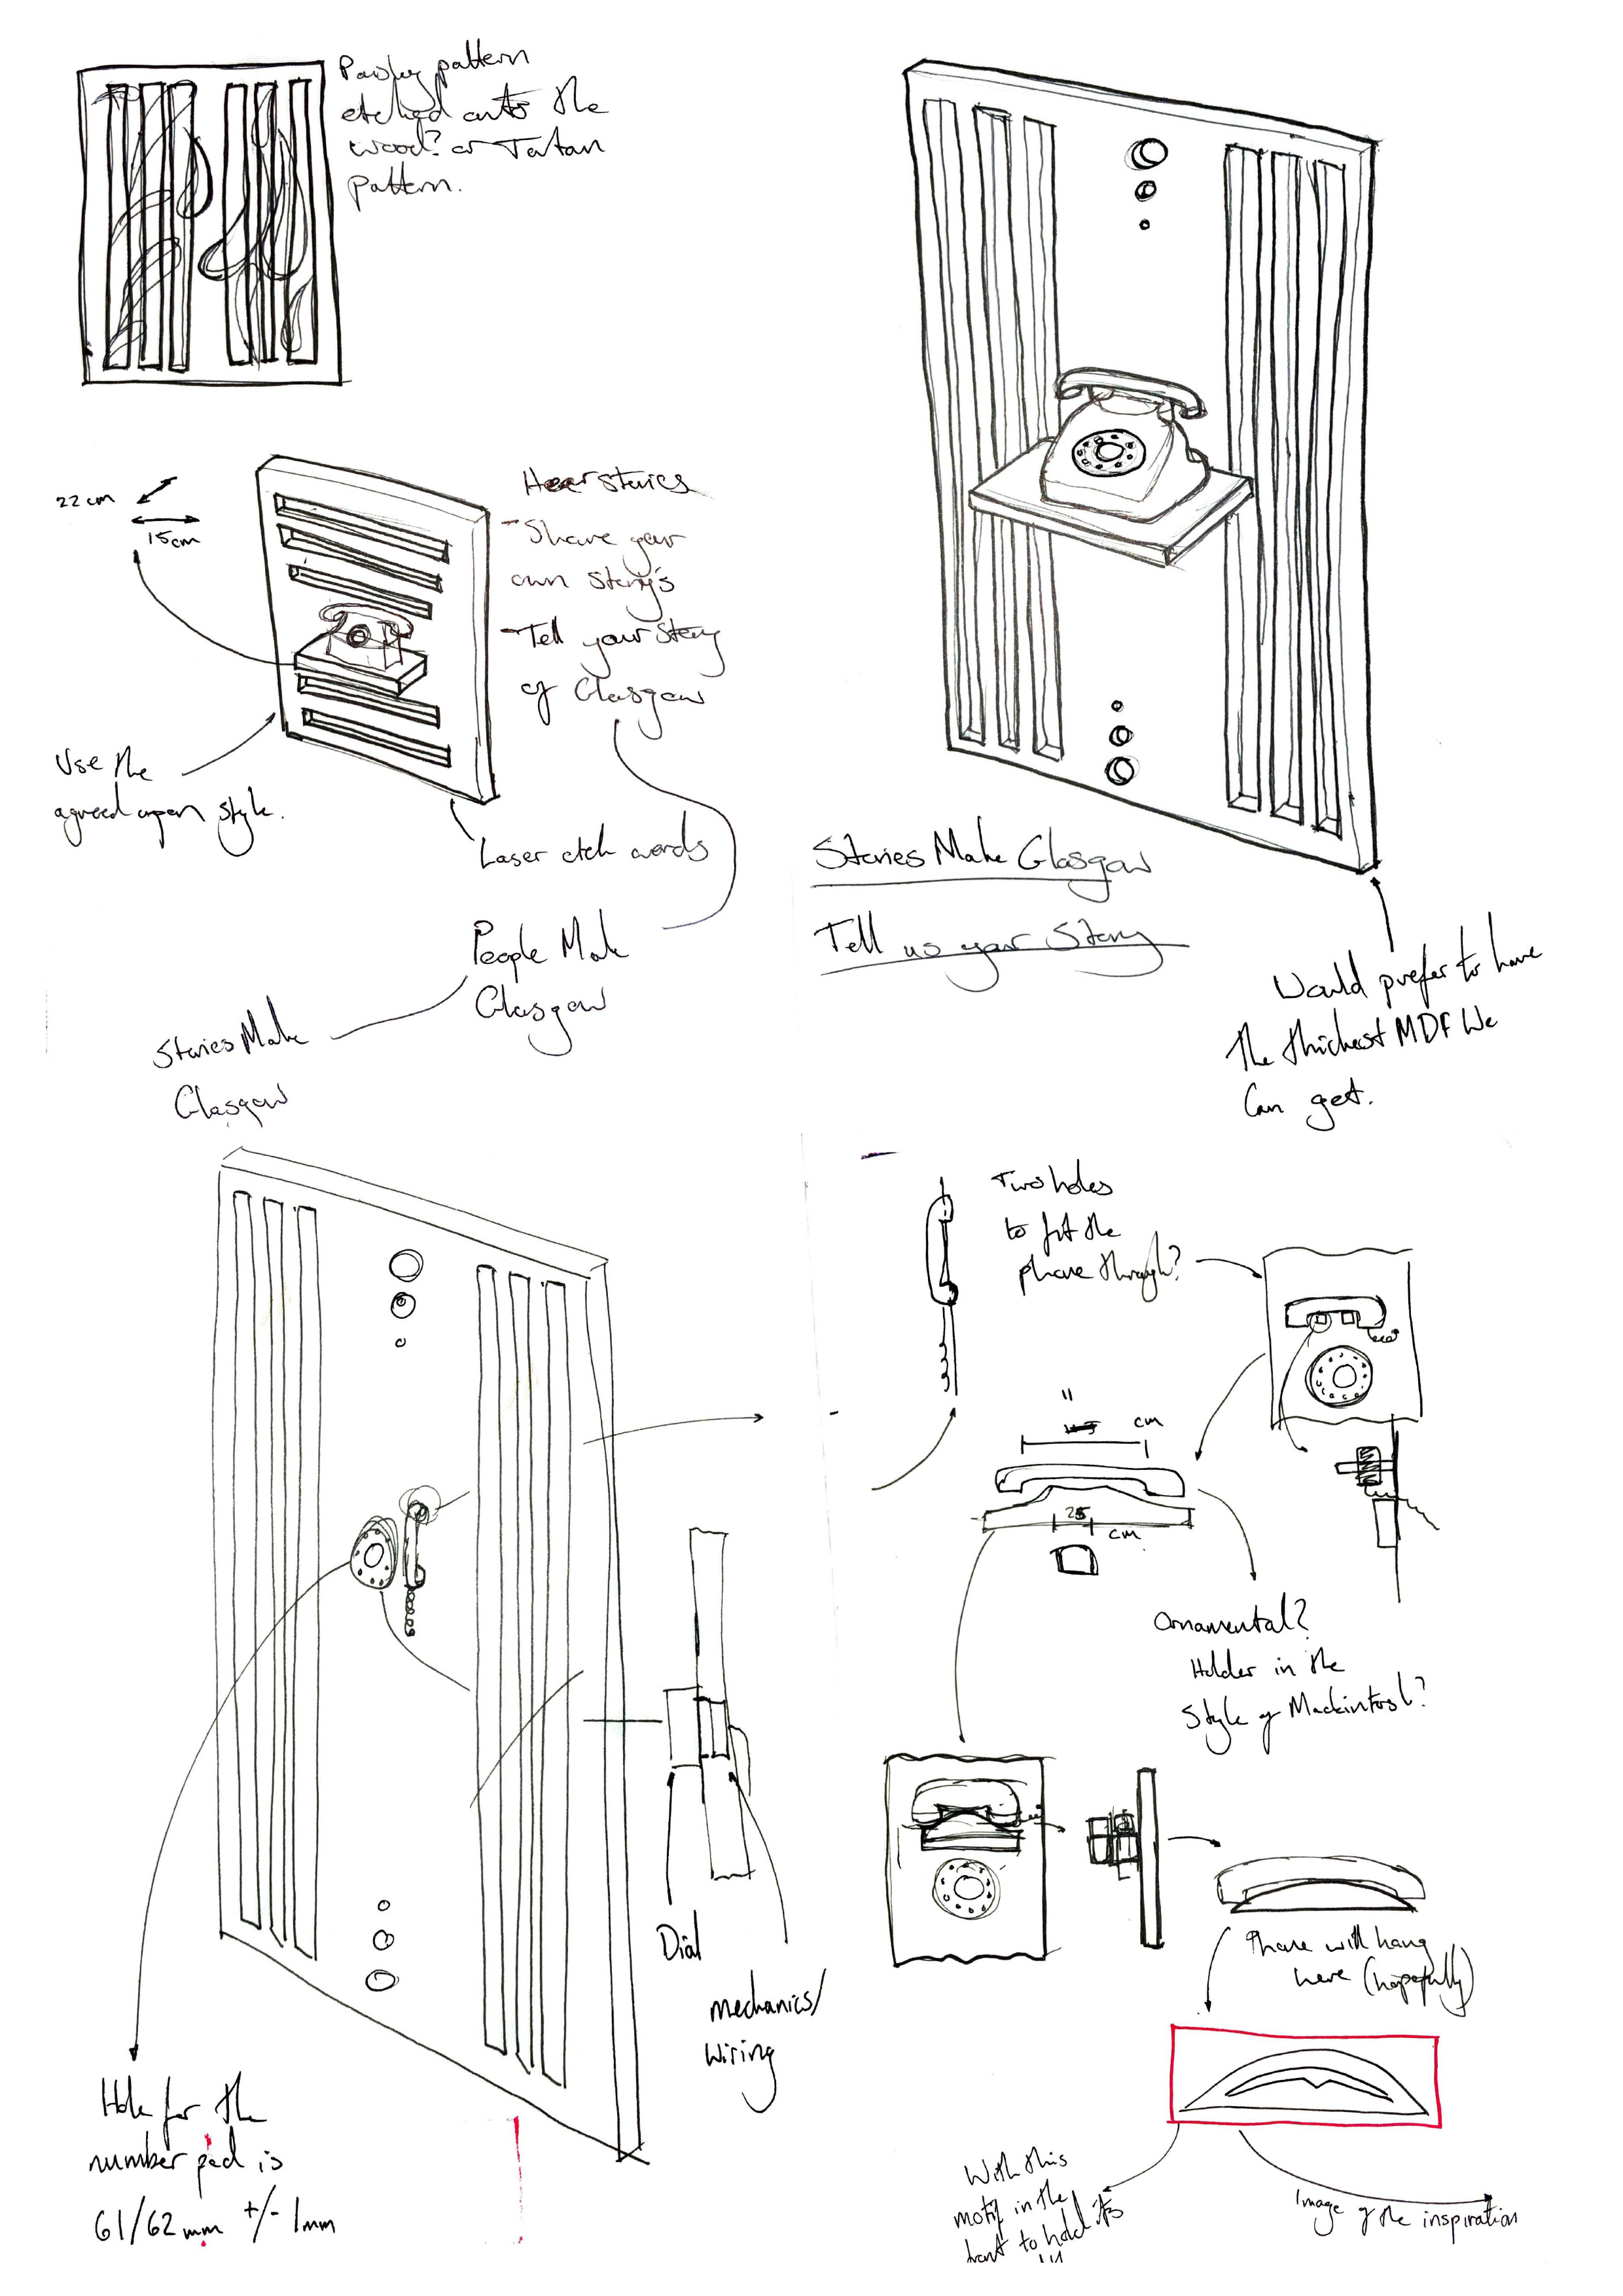 Paisley pattern
etched onto the
wood? or Tartan
pattern.
22 cm
15cm
Hear stories
- Share your
own story's
- Tell your story
of Glasgow
Use the
agreed upon style.
Laser etch words
People Make
Glasgow
Stories Make
Glasgow
Stories Make Glasgow
Tell us your Story
Would prefer to have
the thickest MDF We
Can get.
Dial
Mechanics/
Wiring
Hole for the
number pad is
61/62mm +/- 1mm
Two holes
to fit the
phone through?
11
cm
cm
Ornamental?
Holder in the
Style of Mackintosh?
Phone will hang
here (hopefully)
With this
motif in the
front to hold it
Image of the inspiration